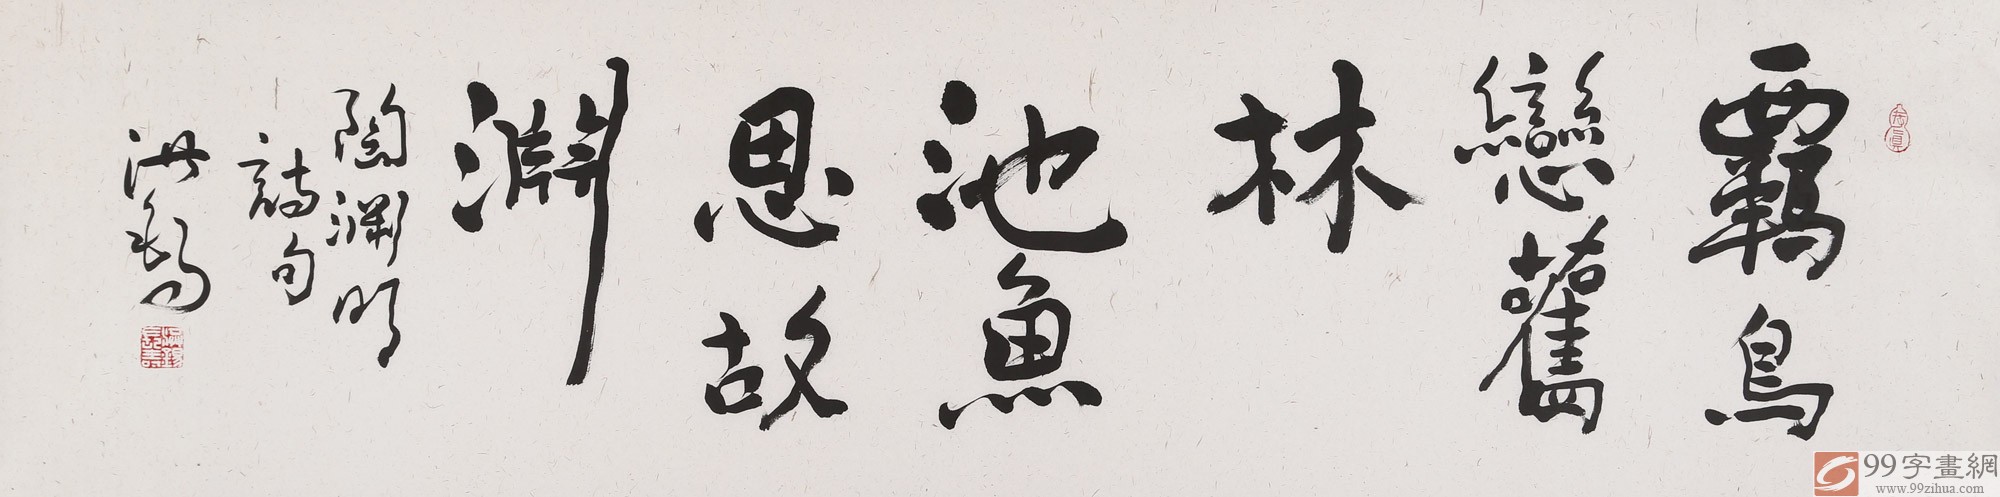 羈鳥
戀舊
林
池魚
思故
淵
陶淵明
詩句
99字畫網
www.99zihua.com